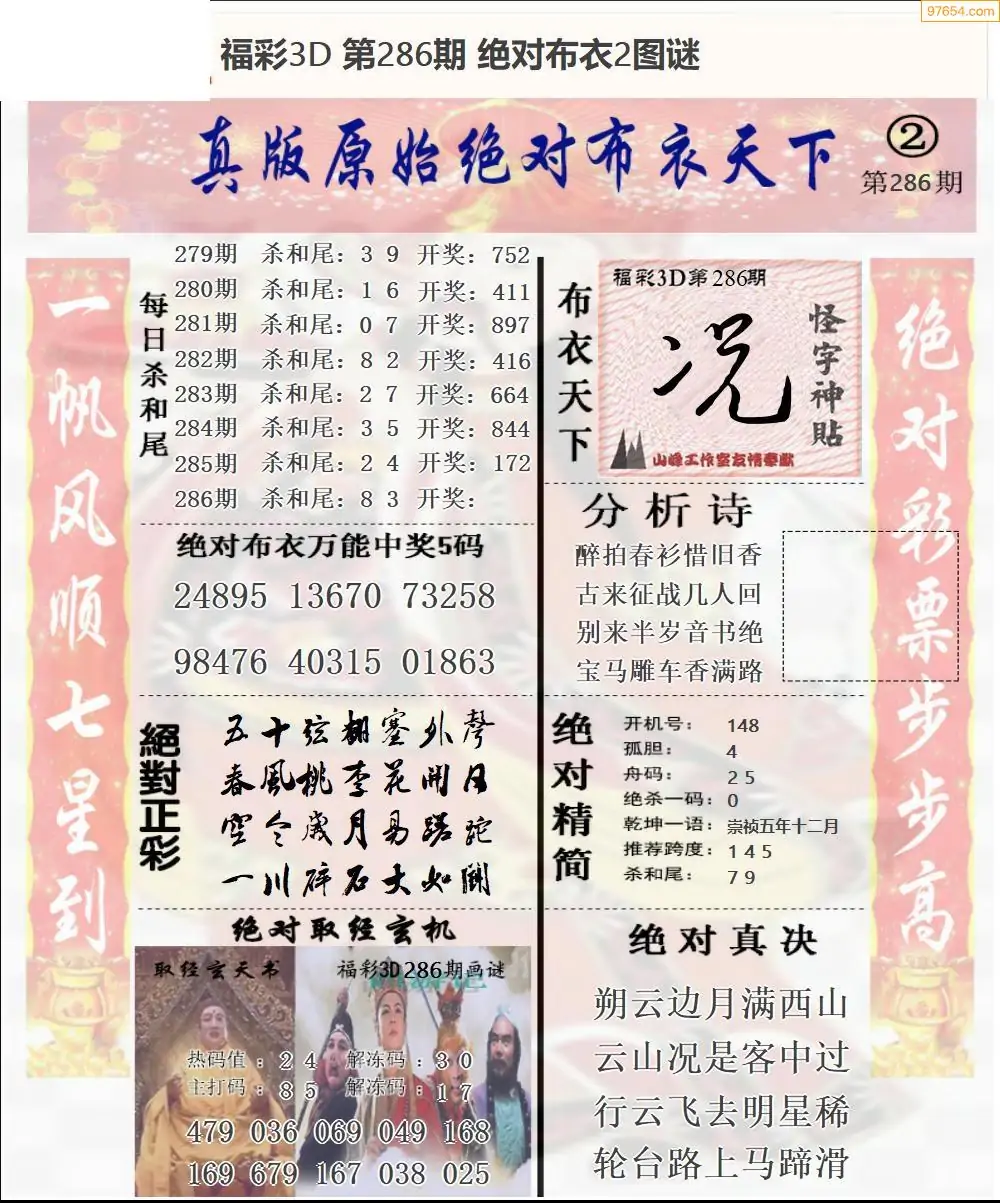 97654.com
福彩3D 第286期 绝对布衣2图谜
真版原始绝对布衣天下
②
第286期
一帆风顺七星到
每日杀和尾
279期 杀和尾：3 9 开奖：752
280期 杀和尾：1 6 开奖：411
281期 杀和尾：0 7 开奖：897
282期 杀和尾：8 2 开奖：416
283期 杀和尾：2 7 开奖：664
284期 杀和尾：3 5 开奖：844
285期 杀和尾：2 4 开奖：172
286期 杀和尾：8 3 开奖：
绝对布衣万能中奖5码
24895 13670 73258
98476 40315 01863
絕對正彩
五十弦翻塞外聲
春風桃李花開日
空令歲月易蹉跎
一川碎石大如鬥
绝对取经玄机
取经玄天书
福彩3D286期画谜
热码值：2 4 解冻码：3 0
主打码：8 5 解冻码：1 7
479 036 069 049 168
169 679 167 038 025
布衣天下
福彩3D第286期
况
怪字神貼
山峰工作室友情奉献
分析诗
醉拍春衫惜旧香
古来征战几人回
别来半岁音书绝
宝马雕车香满路
绝对精简
开机号：148
孤胆：4
舟码：2 5
绝杀一码：0
乾坤一语：崇祯五年十二月
推荐跨度：1 4 5
杀和尾：7 9
绝对真决
朔云边月满西山
云山况是客中过
行云飞去明星稀
轮台路上马蹄滑
绝对彩票步步高